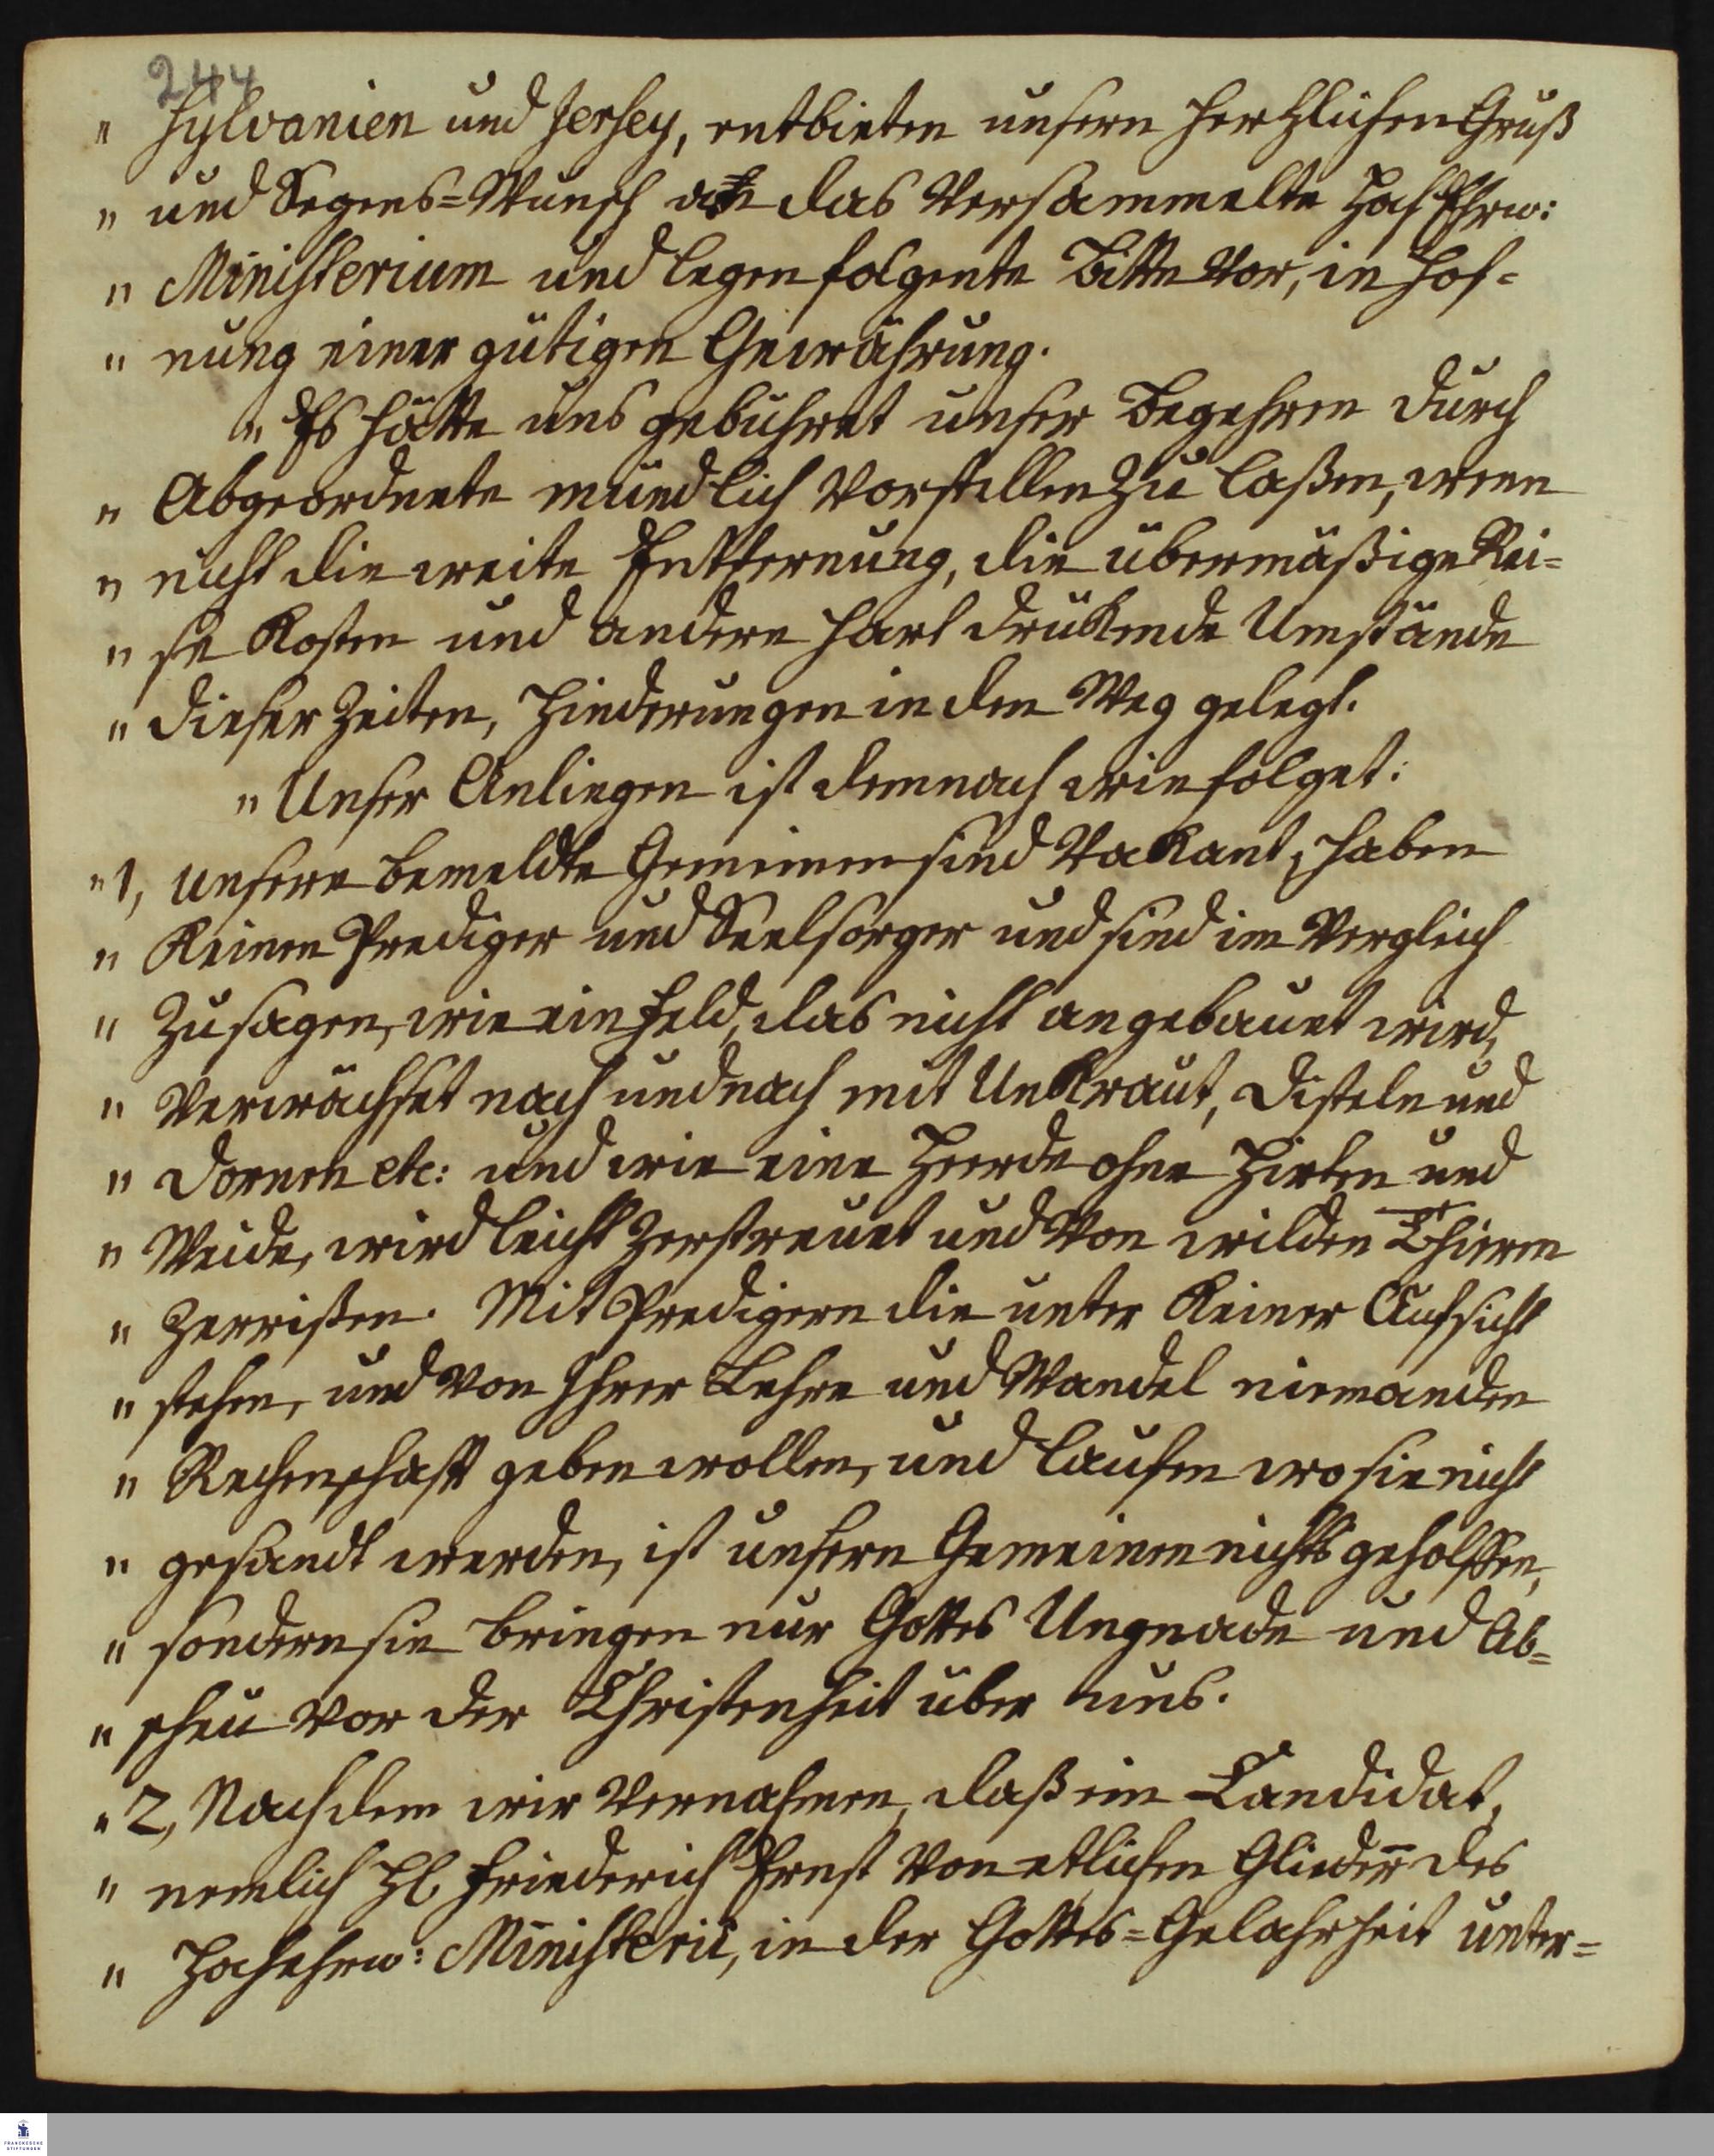 244
" sylvanien und Jersey, entbieten unsern hertzlichen Gruß
" und Segens=Wunsch an das Versammelte HochEhrw:
" Ministerium und legen folgente Bitte vor, in Hof=
" nung einer gütigen Gewährung.
" Es hätte uns gebühret unser Begehren durch
" Abgeordnete mündlich vorstellen zu laßen, wenn
" nicht die weite Entfernung, die übermäßige Rei=
" se Kosten und andere hart drükende Umstände
" dieser Zeiten, Hinderungen in den Weg gelegt.
" Unser Anliegen ist demnach wie folget:
" 1, unsere bemeldte Gemeinen sind Vakant, haben
" Keinen Prediger und Seelsorger und sind im Vergleich
" Zu sagen, wie ein Feld, das nicht angebauet wird,
" Verwächset nach und nach mit UnKraut, Disteln und
" Dornen etc: und wie eine Heerde ohne Hirten und
" Weide, wird leicht Zerstreuet und von wilden Thieren
" Zerrißen. Mit Predigern die unter Keiner Aufsicht
" stehen, und von Ihrer Lehre und Wandel niemanden
" Rechenschaft geben wollen, und laufen wo sie nicht
" gesandt werden, ist unsern Gemeinen nichts geholffen,
" sondern sie bringen nur Gottes Ungnade und Ab=
" scheu vor der Christenheit über uns.
" 2, Nachdem wir Vernahmen, daß ein Candidat,
" nemlich H. Friederich Ernst von etlichen Gliedern des
" Hochehrw: Ministerii, in der Gottes=Gelahrheit unter=
FRANCKESCHE
STIFTUNGEN